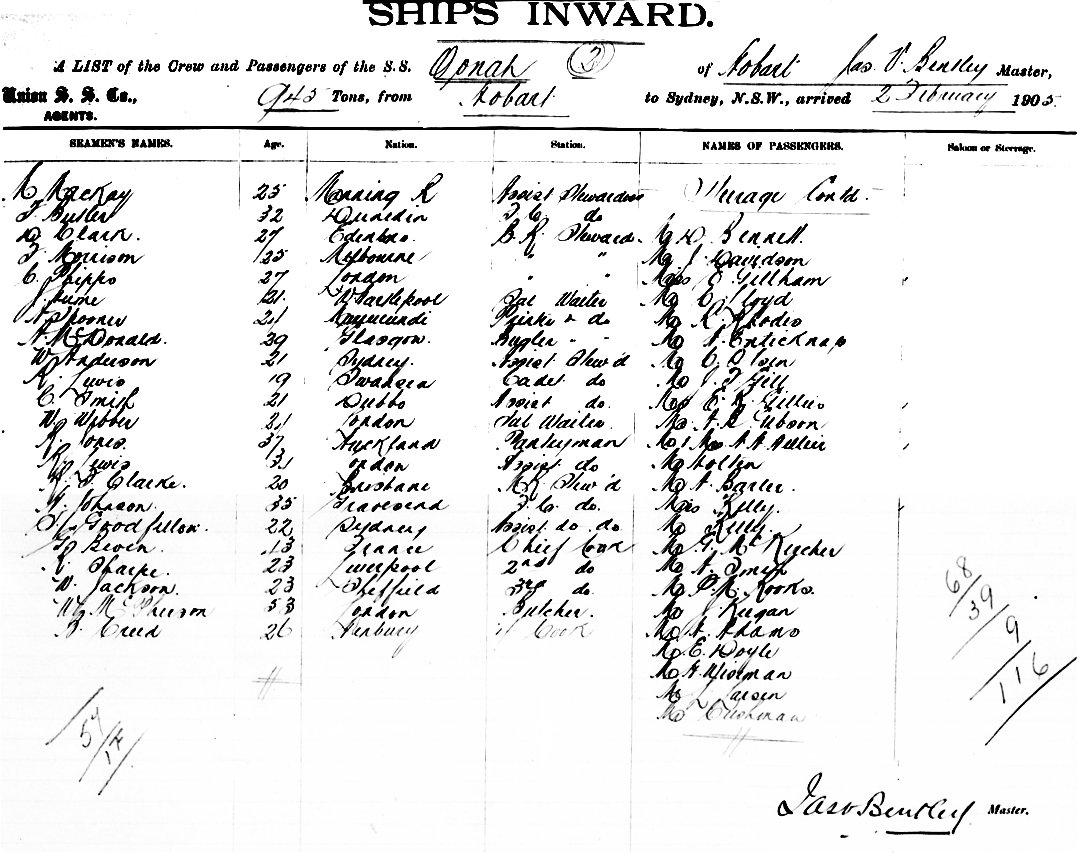 SHIPS INWARD.
A LIST of the Crew and Passengers of the S.S. Oonah (2) of Hobart Jas. V. Bentley Master,
Union S. S. Co., AGENTS. 945 Tons, from Hobart to Sydney, N.S.W., arrived 2 February 1905.
SEAMEN'S NAMES. Age. Nation. Station. NAMES OF PASSENGERS. Saloon or Steerage.
Mackay 25 Manning R Assist Stewardess Steerage Contd
T. Butler 32 Dunedin F. C. do
D. Clark. 27 Edinboro B. R. Steward. Mr D. Bennett
T. Morrison 25 Melbourne " " Mr J Davidson
C. Phipps 27 London " " Miss E Gillham
J. Hume 21 W Hartlepool Sal Waiter Mr C. Lloyd
A. Spooner 21 do Mr R. Rhodes
A. McDonald. 29 Glasgow. Bugler " " Mr A Enticknap
W. Anderson 21 Sydney. Assist Stew'd Mr O. Olsen
R. Lewis 19 Swansea Cadet do Mr J. T. Gill
C. Smith 21 Dubbo Assist do. E. R. Gillies
W. Webber 21 London Sal Waiter Mr A R Gibson
R. Jones 37 Auckland Pantryman
R. Lewis 31 London Assist do
R. F. Clarke. 20 Brisbane Stew'd Mr A. Barter.
A. Johnson. 35 Gravesend F. C. do. Miss Kelly.
Goodfellow. 22 Sydney Assist do do Mr Kelly.
Beven. France Chief Cook Mr G. McKercher
R. Sharpe. 23 Liverpool 2nd do Mr A. Smith
W. Jackson. 23 Sheffield 3rd do. Mr P. R. Rooks.
W. McPherson 53 London Butcher. Mr J Keegan
B. Creed 26 Cook Mr A. Adams
Mr E. Doyle
Mr Wiseman
Mr J. Larsen
Mr Cushman
57/14
68/39/9/116
Jas V Bentley Master.